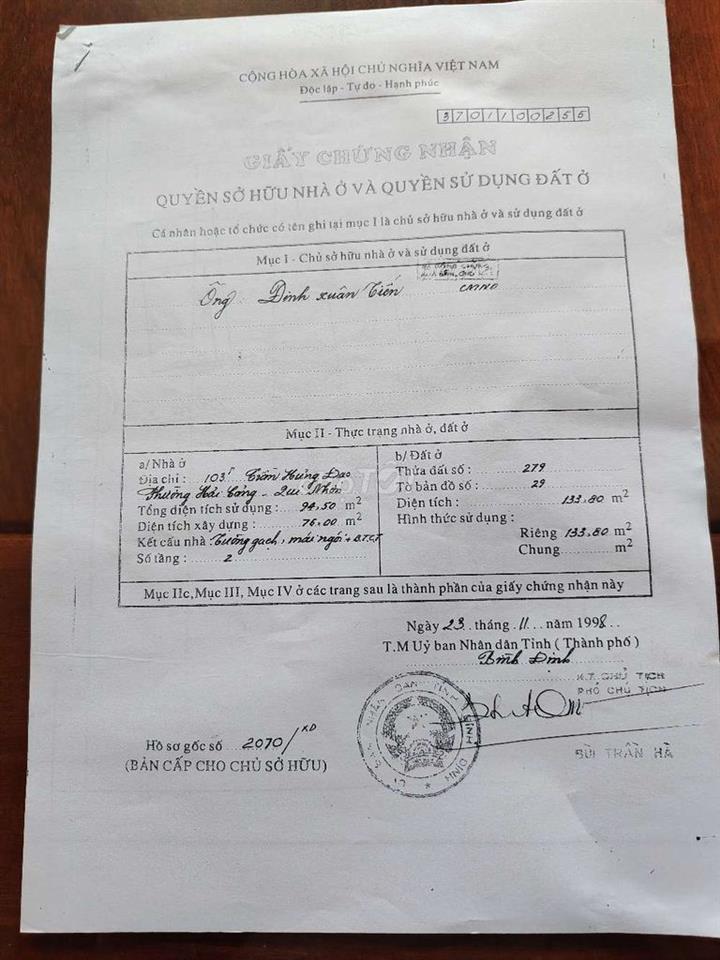 CỘNG HÒA XÃ HỘI CHỦ NGHĨA VIỆT NAM
Độc lập - Tự do - Hạnh phúc
3701100255
GIẤY CHỨNG NHẬN
QUYỀN SỞ HỮU NHÀ Ở VÀ QUYỀN SỬ DỤNG ĐẤT Ở
Cá nhân hoặc tổ chức có tên ghi tại mục I là chủ sở hữu nhà ở và sử dụng đất ở
Mục I - Chủ sở hữu nhà ở và sử dụng đất ở
Ông Đinh Xuân Tiến CMND
Mục II - Thực trạng nhà ở, đất ở
a/ Nhà ở
Địa chỉ : 103 Trần Hưng Đạo
Phường Hải Cảng - Qui Nhơn
Tổng diện tích sử dụng : 94,50 m2
Diện tích xây dựng : 76,00 m2
Kết cấu nhà Tường gạch, mái ngói + B.T.C.T
Số tầng : 2
b/ Đất ở
Thửa đất số : 279
Tờ bản đồ số : 29
Diện tích : 133,80 m2
Hình thức sử dụng :
Riêng 133,80 m2
Chung m2
Mục IIc, Mục III, Mục IV ở các trang sau là thành phần của giấy chứng nhận này
Ngày 23 tháng 11 năm 1998
T.M Uỷ ban Nhân dân Tỉnh ( Thành phố )
Bình Định
K.T. CHỦ TỊCH
PHÓ CHỦ TỊCH
BÙI TRẦN HÀ
Hồ sơ gốc số 2070/KD
(BẢN CẤP CHO CHỦ SỞ HỮU)